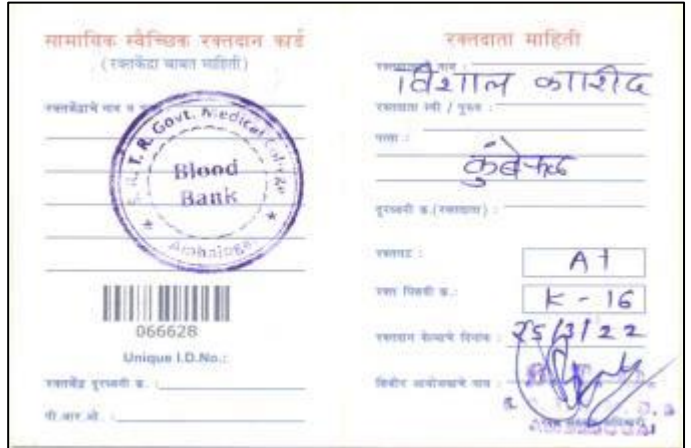 सामायिक स्वैच्छिक रक्तदान कार्ड
(रक्तकेंद्रा बाबत माहिती)
रक्तकेंद्राचे नाव व
S. R. T. R. Govt. Medical College
Blood
Bank
Ambajogai
066628
Unique I.D.No.:
रक्तकेंद्र दुरध्वनी क्र. :
पी.आर.ओ. :
रक्तदाता माहिती
विशाल काशीद
रक्तदाता स्त्री / पुरुष :
पत्ता :
कुंबेफळ
दुरध्वनी क्र.(रक्तदाता) :
रक्तगट :
A+
रक्त पिशवी क्र.:
K - 16
रक्तदान केल्याचे दिनांक :
25/3/22
शिबीर आयोजकाचे नाव :